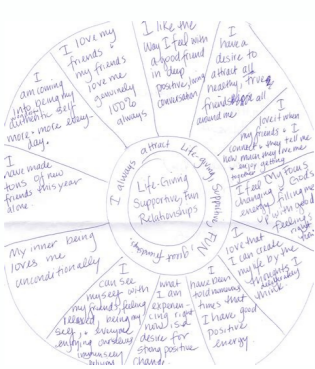 Life-Giving
Supportive, Fun
Relationships
I always attract Life-giving
supportive, FUN
I like the
way I feel with
a good friend
in deep
positive, loving
conversation
I
have a
desire to
attract all
healthy, true
friends all
around me
I love it when
my friends + I
connect + they tell me
how much they love me
+ enjoy getting
I feel my focus
changing + God's
energy filling me
up with good
feelings
I
love that
I can create
my life by the
thoughts I
think.
I
have been
told numerous
times that
I have good
positive
energy.
what
I am
experien-
cing right
now is a
desire for
strong positive
change.
I
can see
myself with
my friends, feeling
relaxed, being my
self, + everyone
enjoying ourselves
immensely
My inner being
loves me
unconditionally
I
have made
tons of new
friends this year
alone.
I
am coming
into being my
authentic self
more + more every
day.
I love my
friends +
my friends
love me
genuinely
100%
always